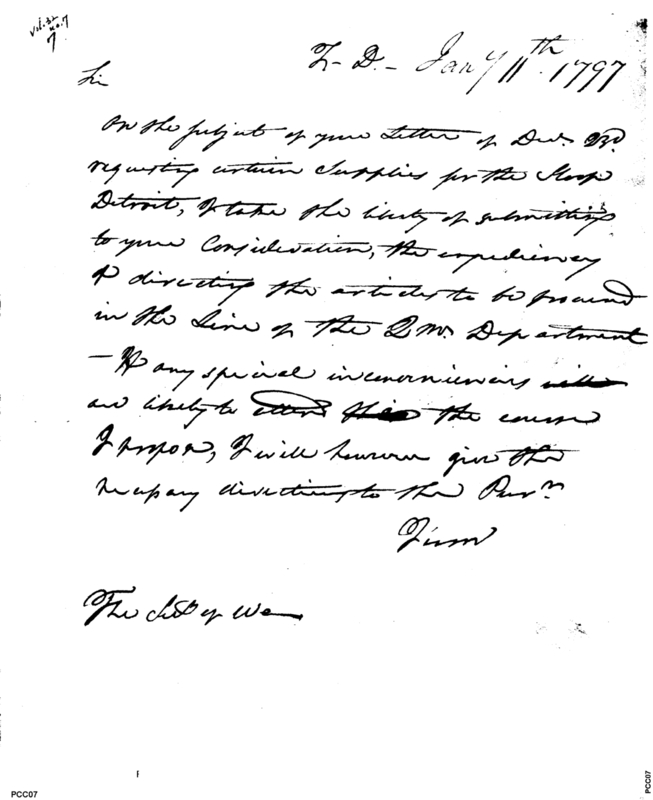 Vol. 32
No. 7
7
T. D. Jany 11th 1797
Sir
On the subject of your Letter of Decr
requesting certain Supplies for the Sloop
Detroit, I take the liberty of submitting
to your Consideration, the expediency
of directing the articles to be procured
in the Line of the Q Mr. Department
— If any special inconveniencies will
are likely to attend this the course
I propose, I will however give the
necessary directions to the Purr
I am
The Sect of War
PCC07
PCC07